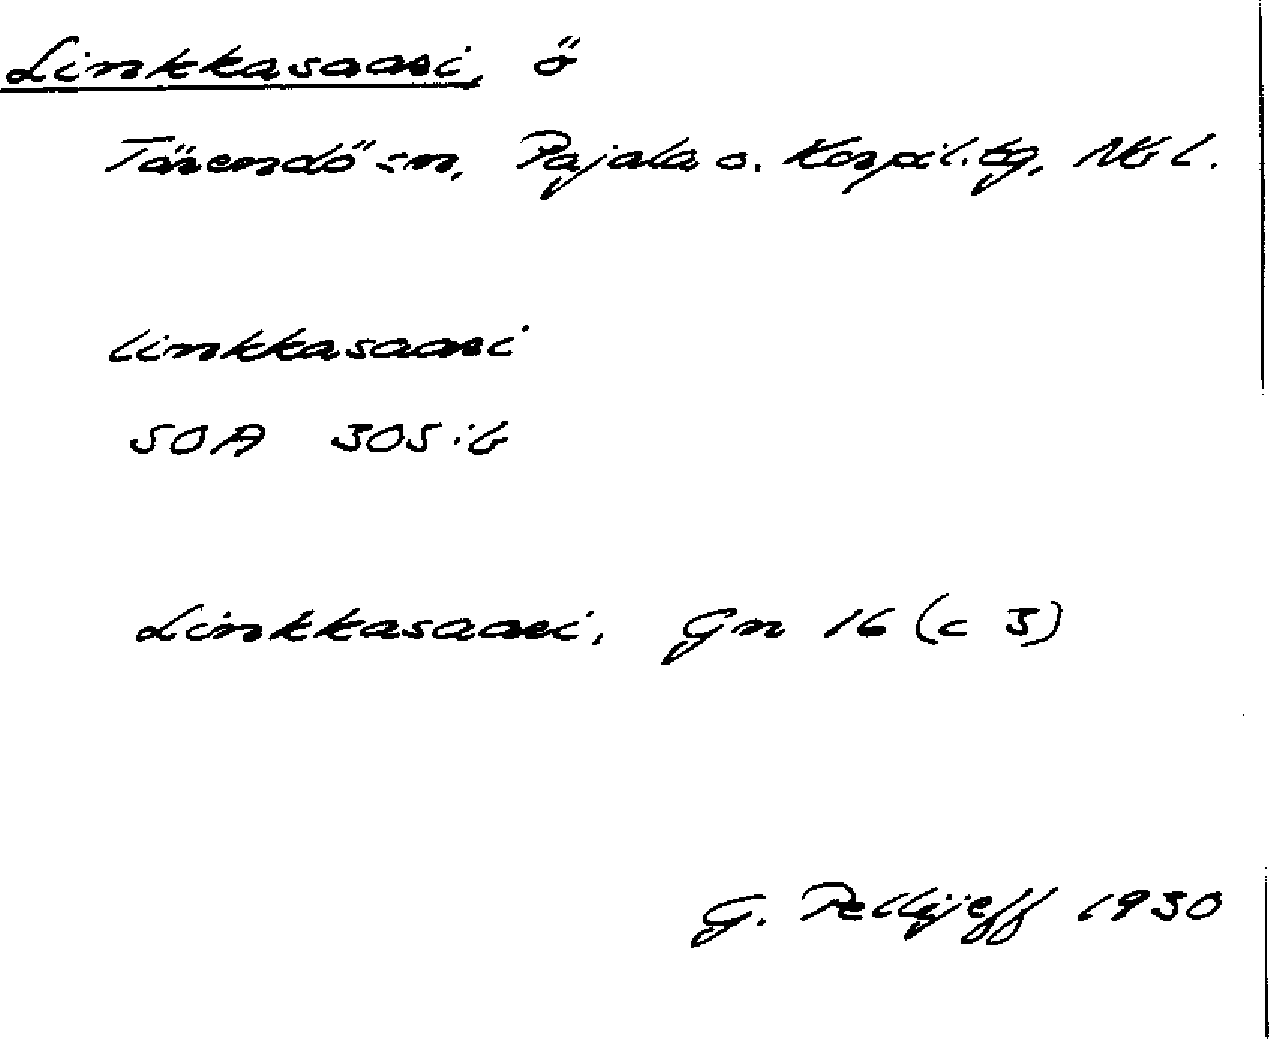 Linkkasaari, ö
Tärendö sn, Pajala o. Korpil. tg, Nb l.
linkkasaari
SOA 305:6
Linkkasaari, Gn 16 (c 3)
G. Pellijeff 1930